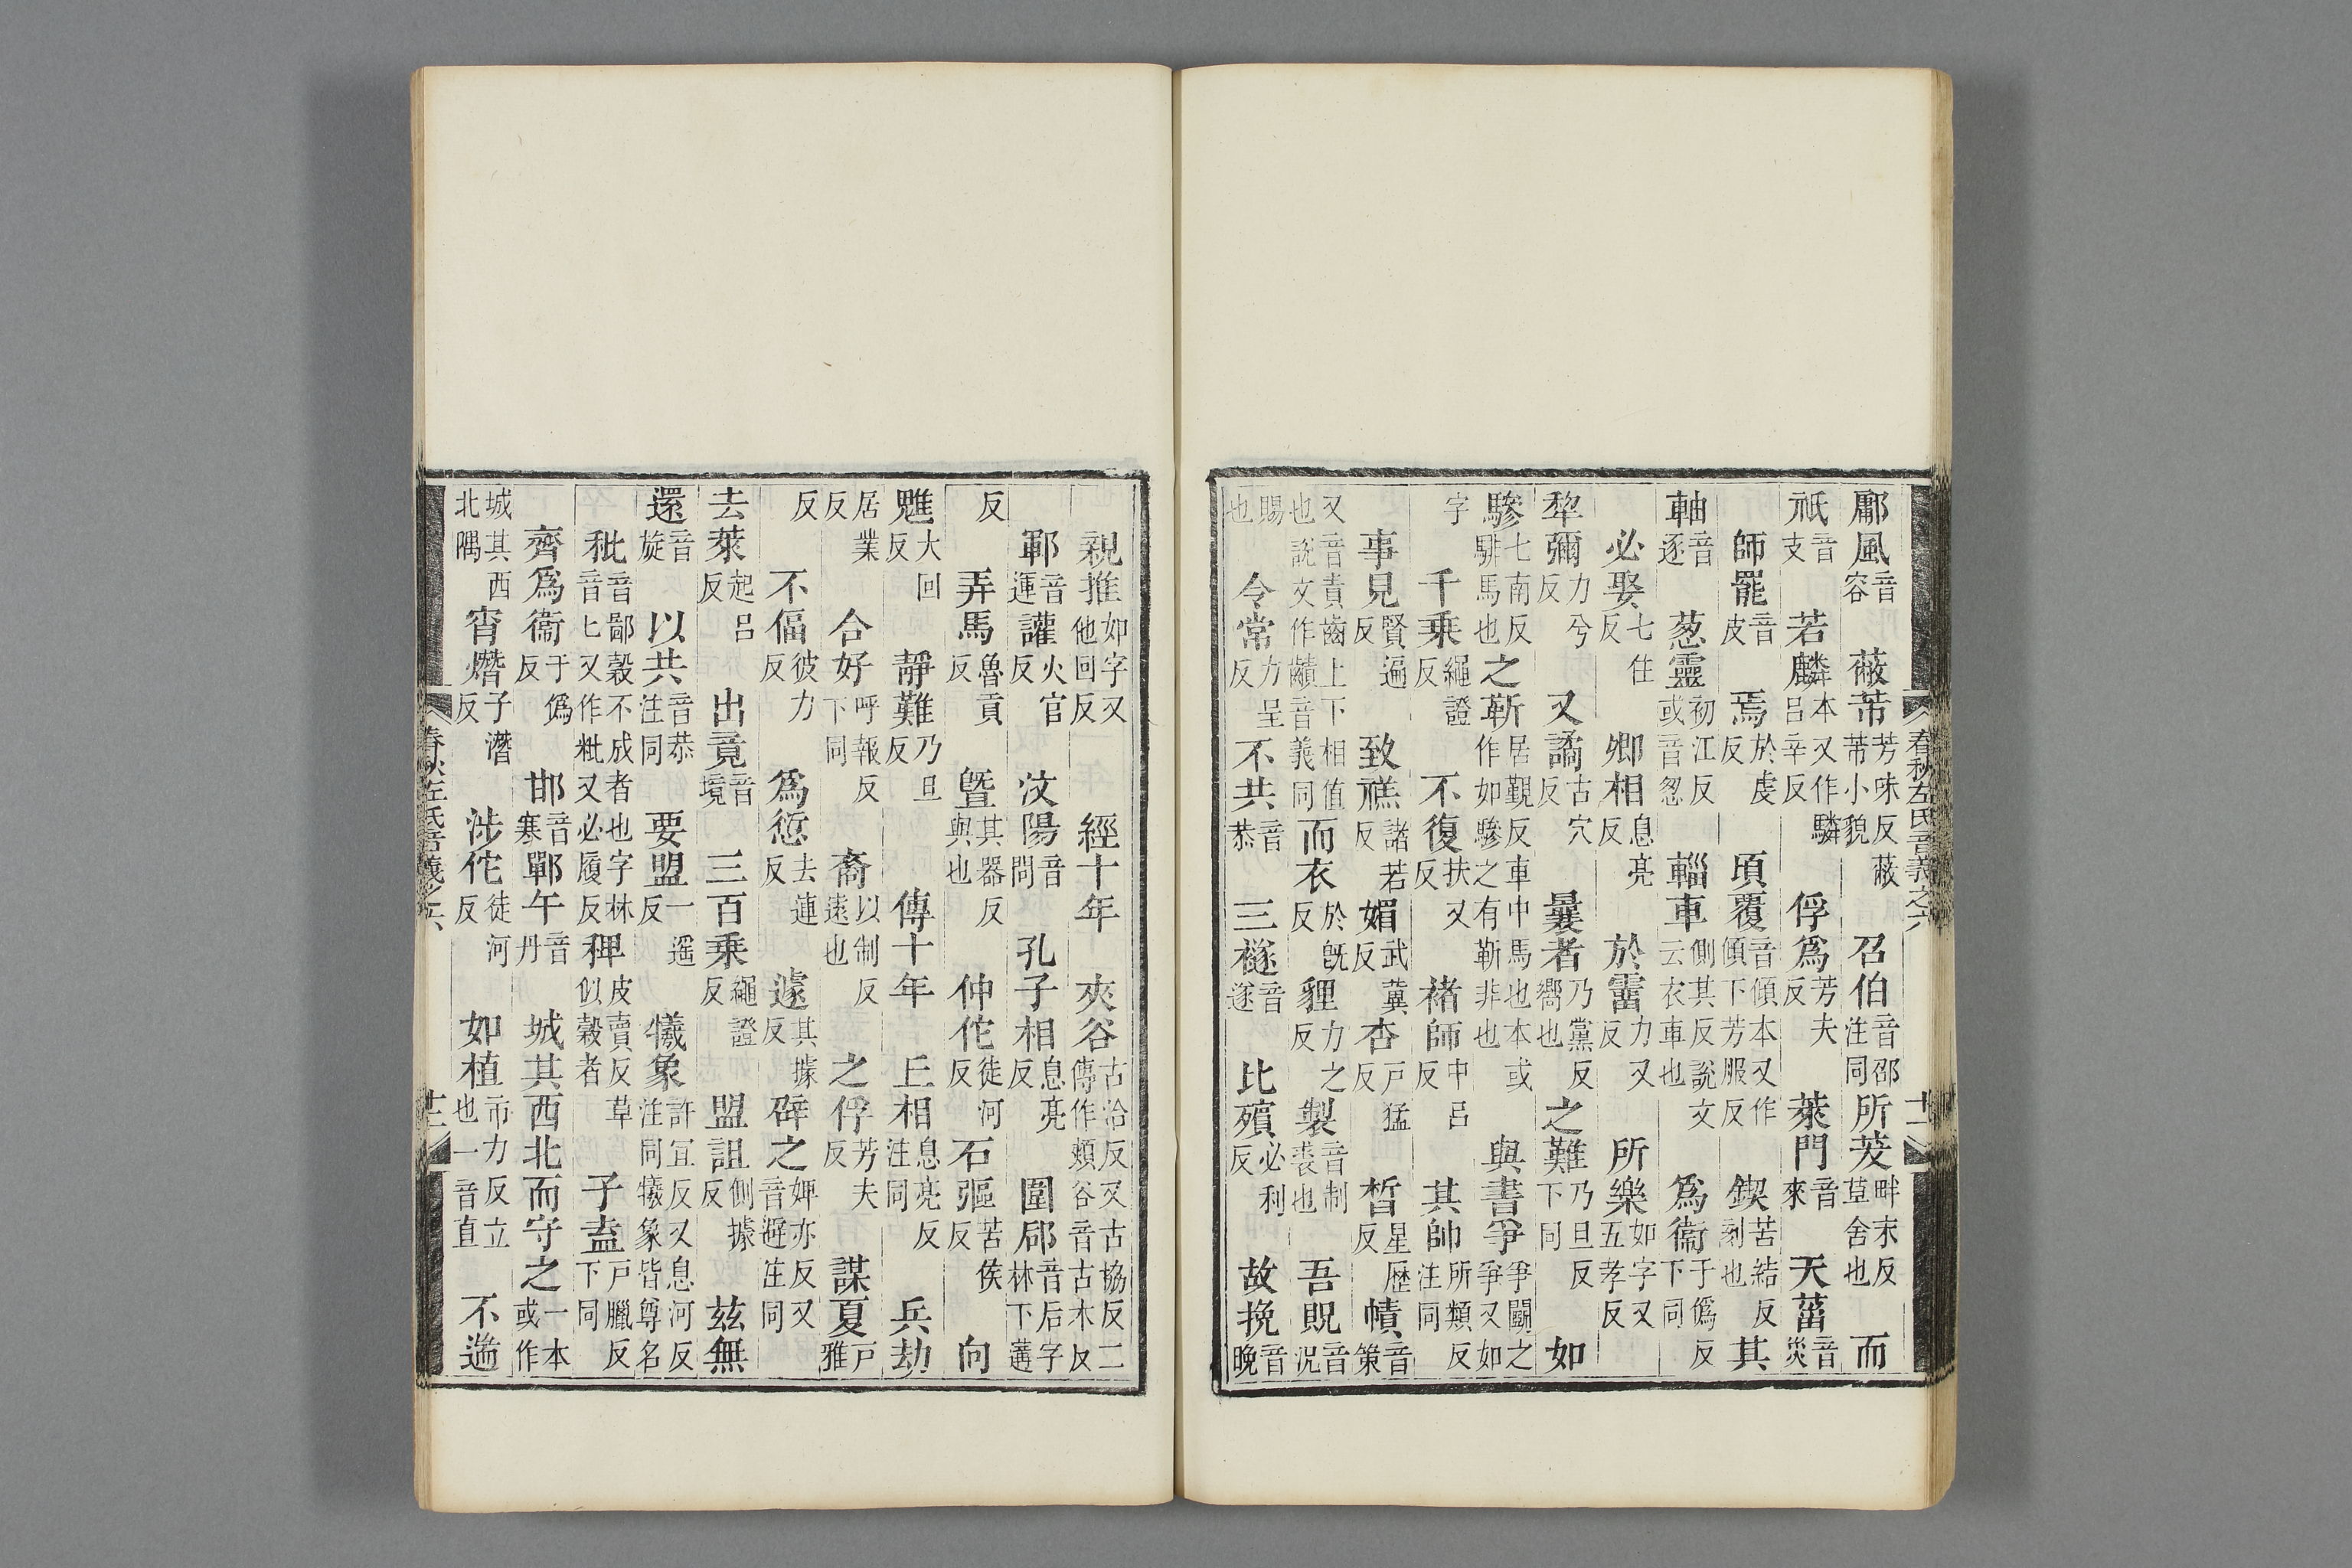 鄘風音容 蔽芾芳味反蔽芾小貌 召伯音邵注同所茇畔末反草舍也 而
祇音支 若麟本又作驎呂辛反 俘爲芳夫反 萊門音來 天菑音災
師罷音皮 焉於虔反 頃覆音傾本又作傾下芳服反 鍥苦結反刻也 其
軸音逐 葱靈初江反或音怱 輜車側其反說文云衣車也 爲衞于僞反下同
必娶七住反 卿相息亮反 於霤力又反 所樂如字又五孝反
犂彌力兮反 又譎古穴反 曩者乃黨反嚮也之難乃旦反下同 如
驂七南反騑馬也之靳居覲反車中馬也本或作如驂之有靳非也 與書爭爭鬬之爭又如
字 千乘繩證反 不復扶又反 褚師中呂反 其帥所類反注同
事見賢遍反 致禚諸若反媚武冀反杏戶猛反 晳星歷反幘音策
又音責齒上下相値也說文作䶦音義同而衣於旣反貍力之反 製音制裘也 吾貺音況
令常力呈反不共音恭三襚音遂 比殯必利反 故挽音晚
賜也
春秋左氏音義之六
親推如字又他回反 經十年 夾谷古洽反又古協反二傳作頰谷音古木反
鄆音運讙火官反 汶陽音問 孔子相息亮反 圍郈音后字林下遘
反 弄馬魯貢反 曁其器反與也 仲佗徒河反 石彄苦侯反 向
魋大回反 靜難乃旦反 傳十年 丘相息亮反注同 兵劫
居業反 合好呼報反下同 裔以制反遠也 之俘芳夫反 謀夏戶雅
反 不偪彼力反 爲愆去連反 遽其據反辟之婢亦反又音避注同
去萊起呂反 出竟音境 三百乘繩證反 盟詛側據反 兹無
還音旋 以共音恭注同 要盟一遥反 犧象許宜反又息河反注同犧象皆尊名
秕音鄙穀不成者也字林音匕又作粃又必履反稗皮賣反草似穀者 子盍戶臘反下同
齊爲衞于僞反 邯音寒鄲午音丹 城其西北而守之一本或作
城其西北隅 宵熸子潛反 涉佗徒河反 如植市力反立也一音直 不遄
春秋左氏音義之六